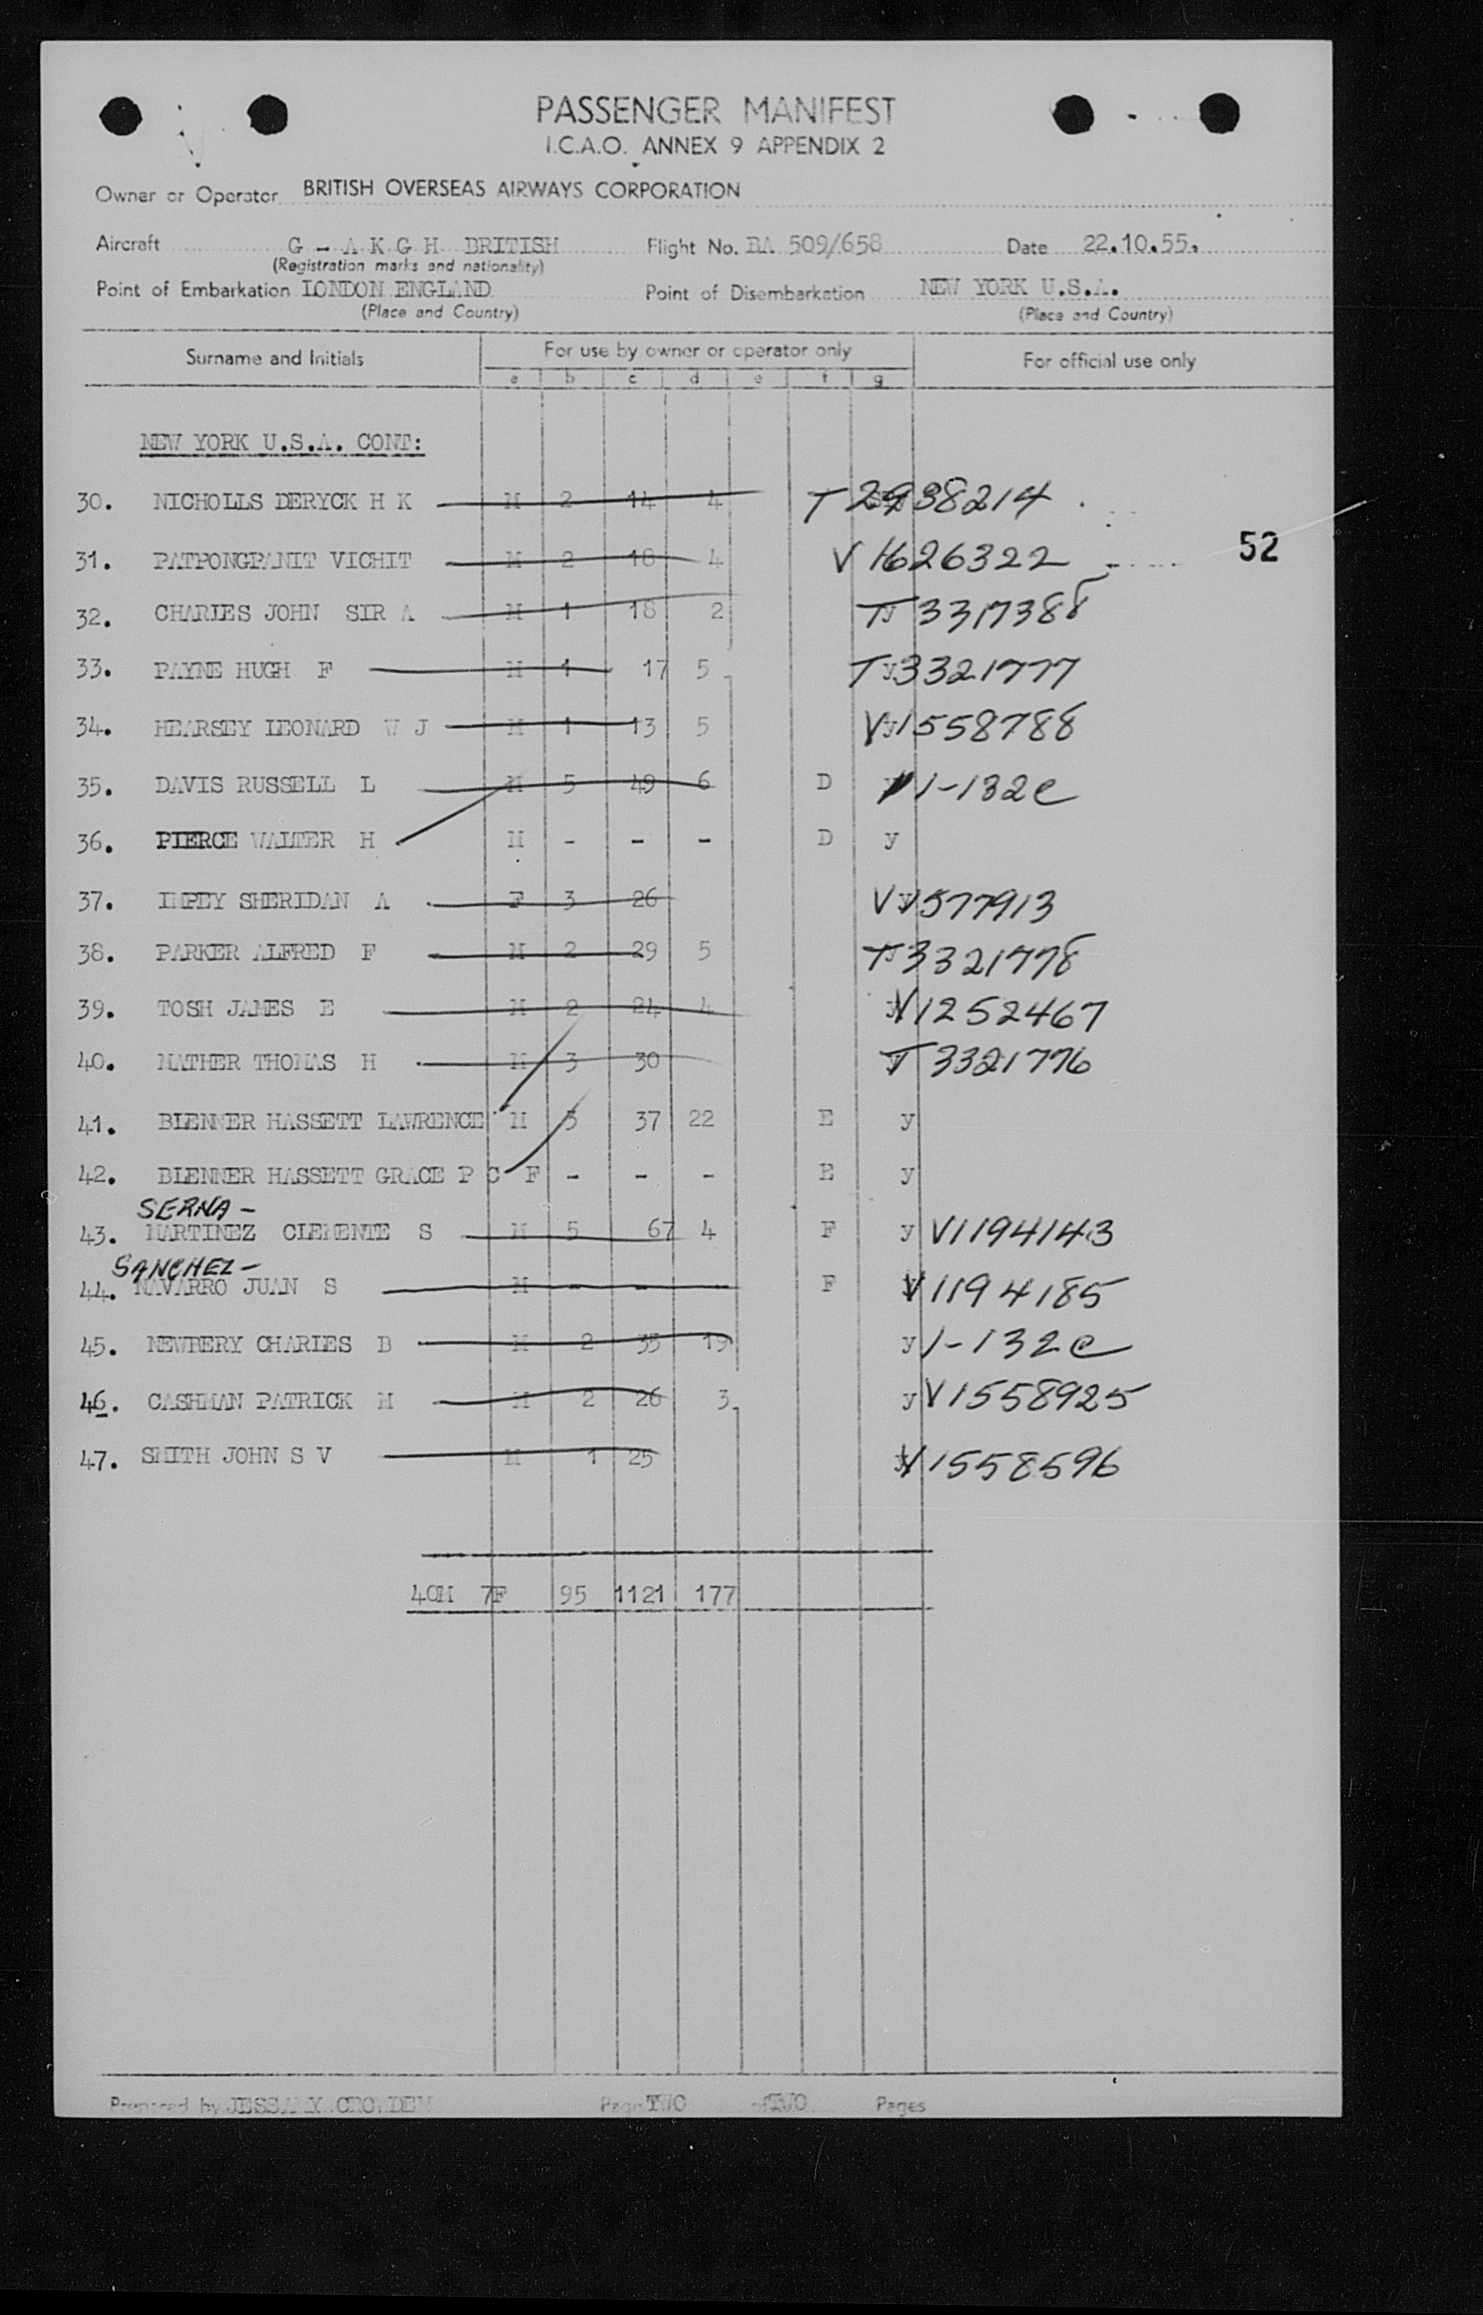 PASSENGER MANIFEST
I.C.A.O. ANNEX 9 APPENDIX 2
Owner or Operator BRITISH OVERSEAS AIRWAYS CORPORATION
Aircraft G - A K G H BRITISH Flight No. BA 509/658 Date 22.10.55.
(Registration marks and nationality)
Point of Embarkation LONDON ENGLAND Point of Disembarkation NEW YORK U.S.A.
(Place and Country) (Place and Country)
Surname and Initials For use by owner or operator only For official use only
a b c d e f g
NEW YORK U.S.A. CONT:
30. NICHOLLS DERYCK H K M 2 14 4 T 2938214
52
31. PATPONGPANIT VICHIT M 2 18 4 V 1626322
32. CHARLES JOHN SIR A M 1 18 2 T 3317388
33. PAYNE HUGH F M 1 17 5 y T 3321777
34. HEARSEY LEONARD W J M 1 13 5 y V1558788
35. DAVIS RUSSELL L M 5 49 6 D 1-132c
36. PIERCE WALTER H M - - - D y
37. IMPEY SHERIDAN A F 3 26 y V 577913
38. PARKER ALFRED F M 2 29 5 T 3321778
39. TOSH JAMES E M 2 24 4 y V1252467
40. MATHER THOMAS H M 3 30 y T 3321776
41. BLENNER HASSETT LAWRENCE M 5 37 22 E y
42. BLENNER HASSETT GRACE P C F - - - E y
SERNA -
43. MARTINEZ CLEMENTE S M 5 67 4 F y V1194143
SANCHEZ -
44. NAVARRO JUAN S M - - - F y V1194185
45. NEWBERY CHARLES B M 2 35 19 y 1-132c
46. CASHMAN PATRICK M M 2 26 3 y V1558925
47. SMITH JOHN S V M 1 25 y V1558596
40M 7F 95 1121 177
Prepared by JESSAMY CROWDEN Page TWO of TWO Pages